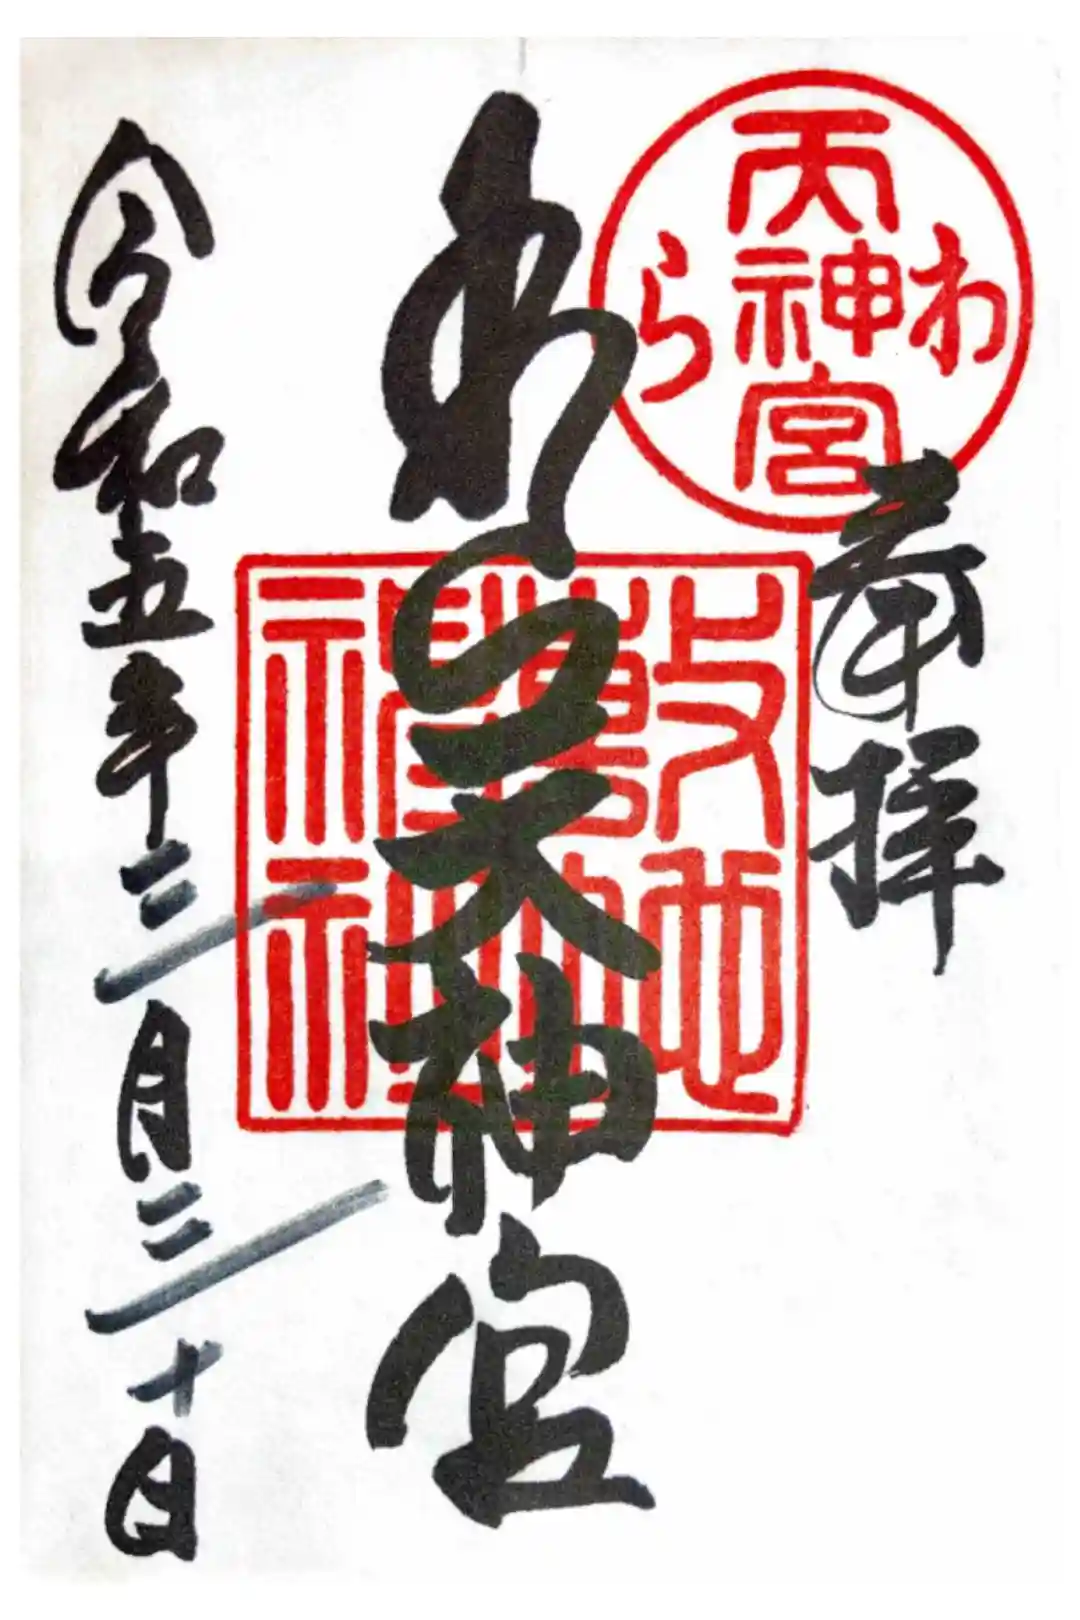 奉拝
わら天神宮
わら天神宮
敷地
神社
令和五年三月三十日